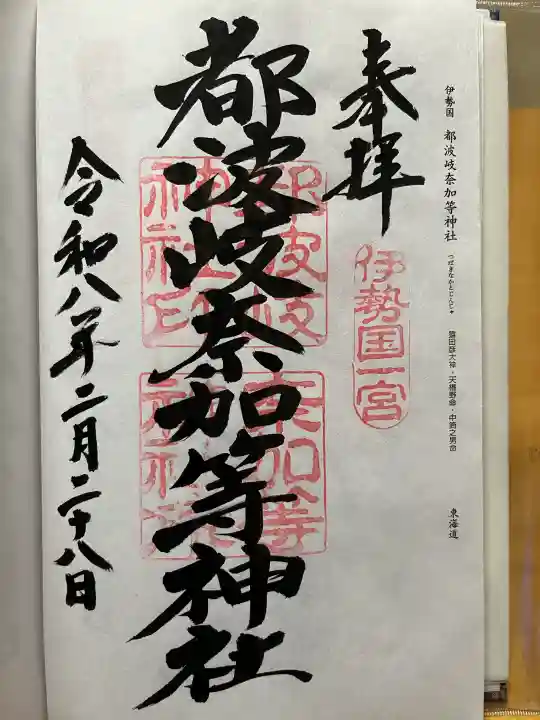 伊勢国 都波岐奈加等神社 つばきなかとじんじゃ 猿田彦大神・天椹野命・中筒之男命 東海道
奉拝
伊勢国一宮
都波岐奈加等神社
都波岐
神社印
奈加等
令和八年二月二十八日